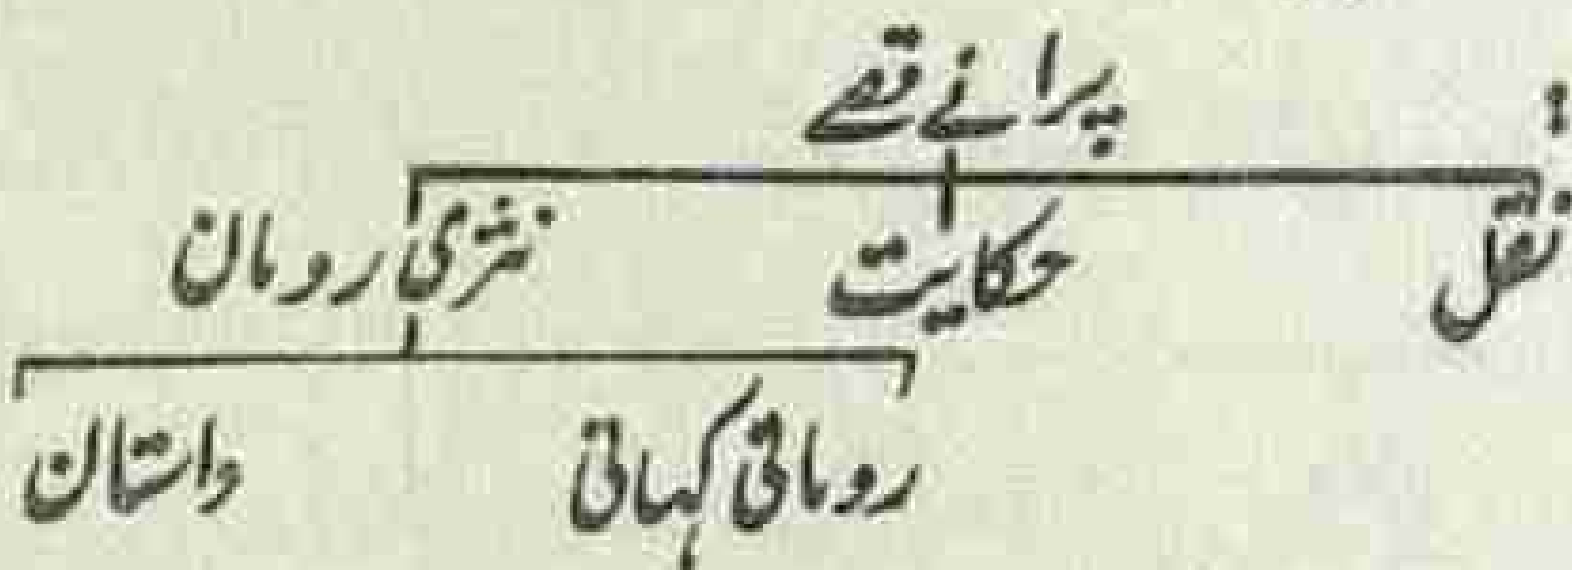 پرانے قصے
نقل حکایت نثری رومان
رومانی کہانی داستان